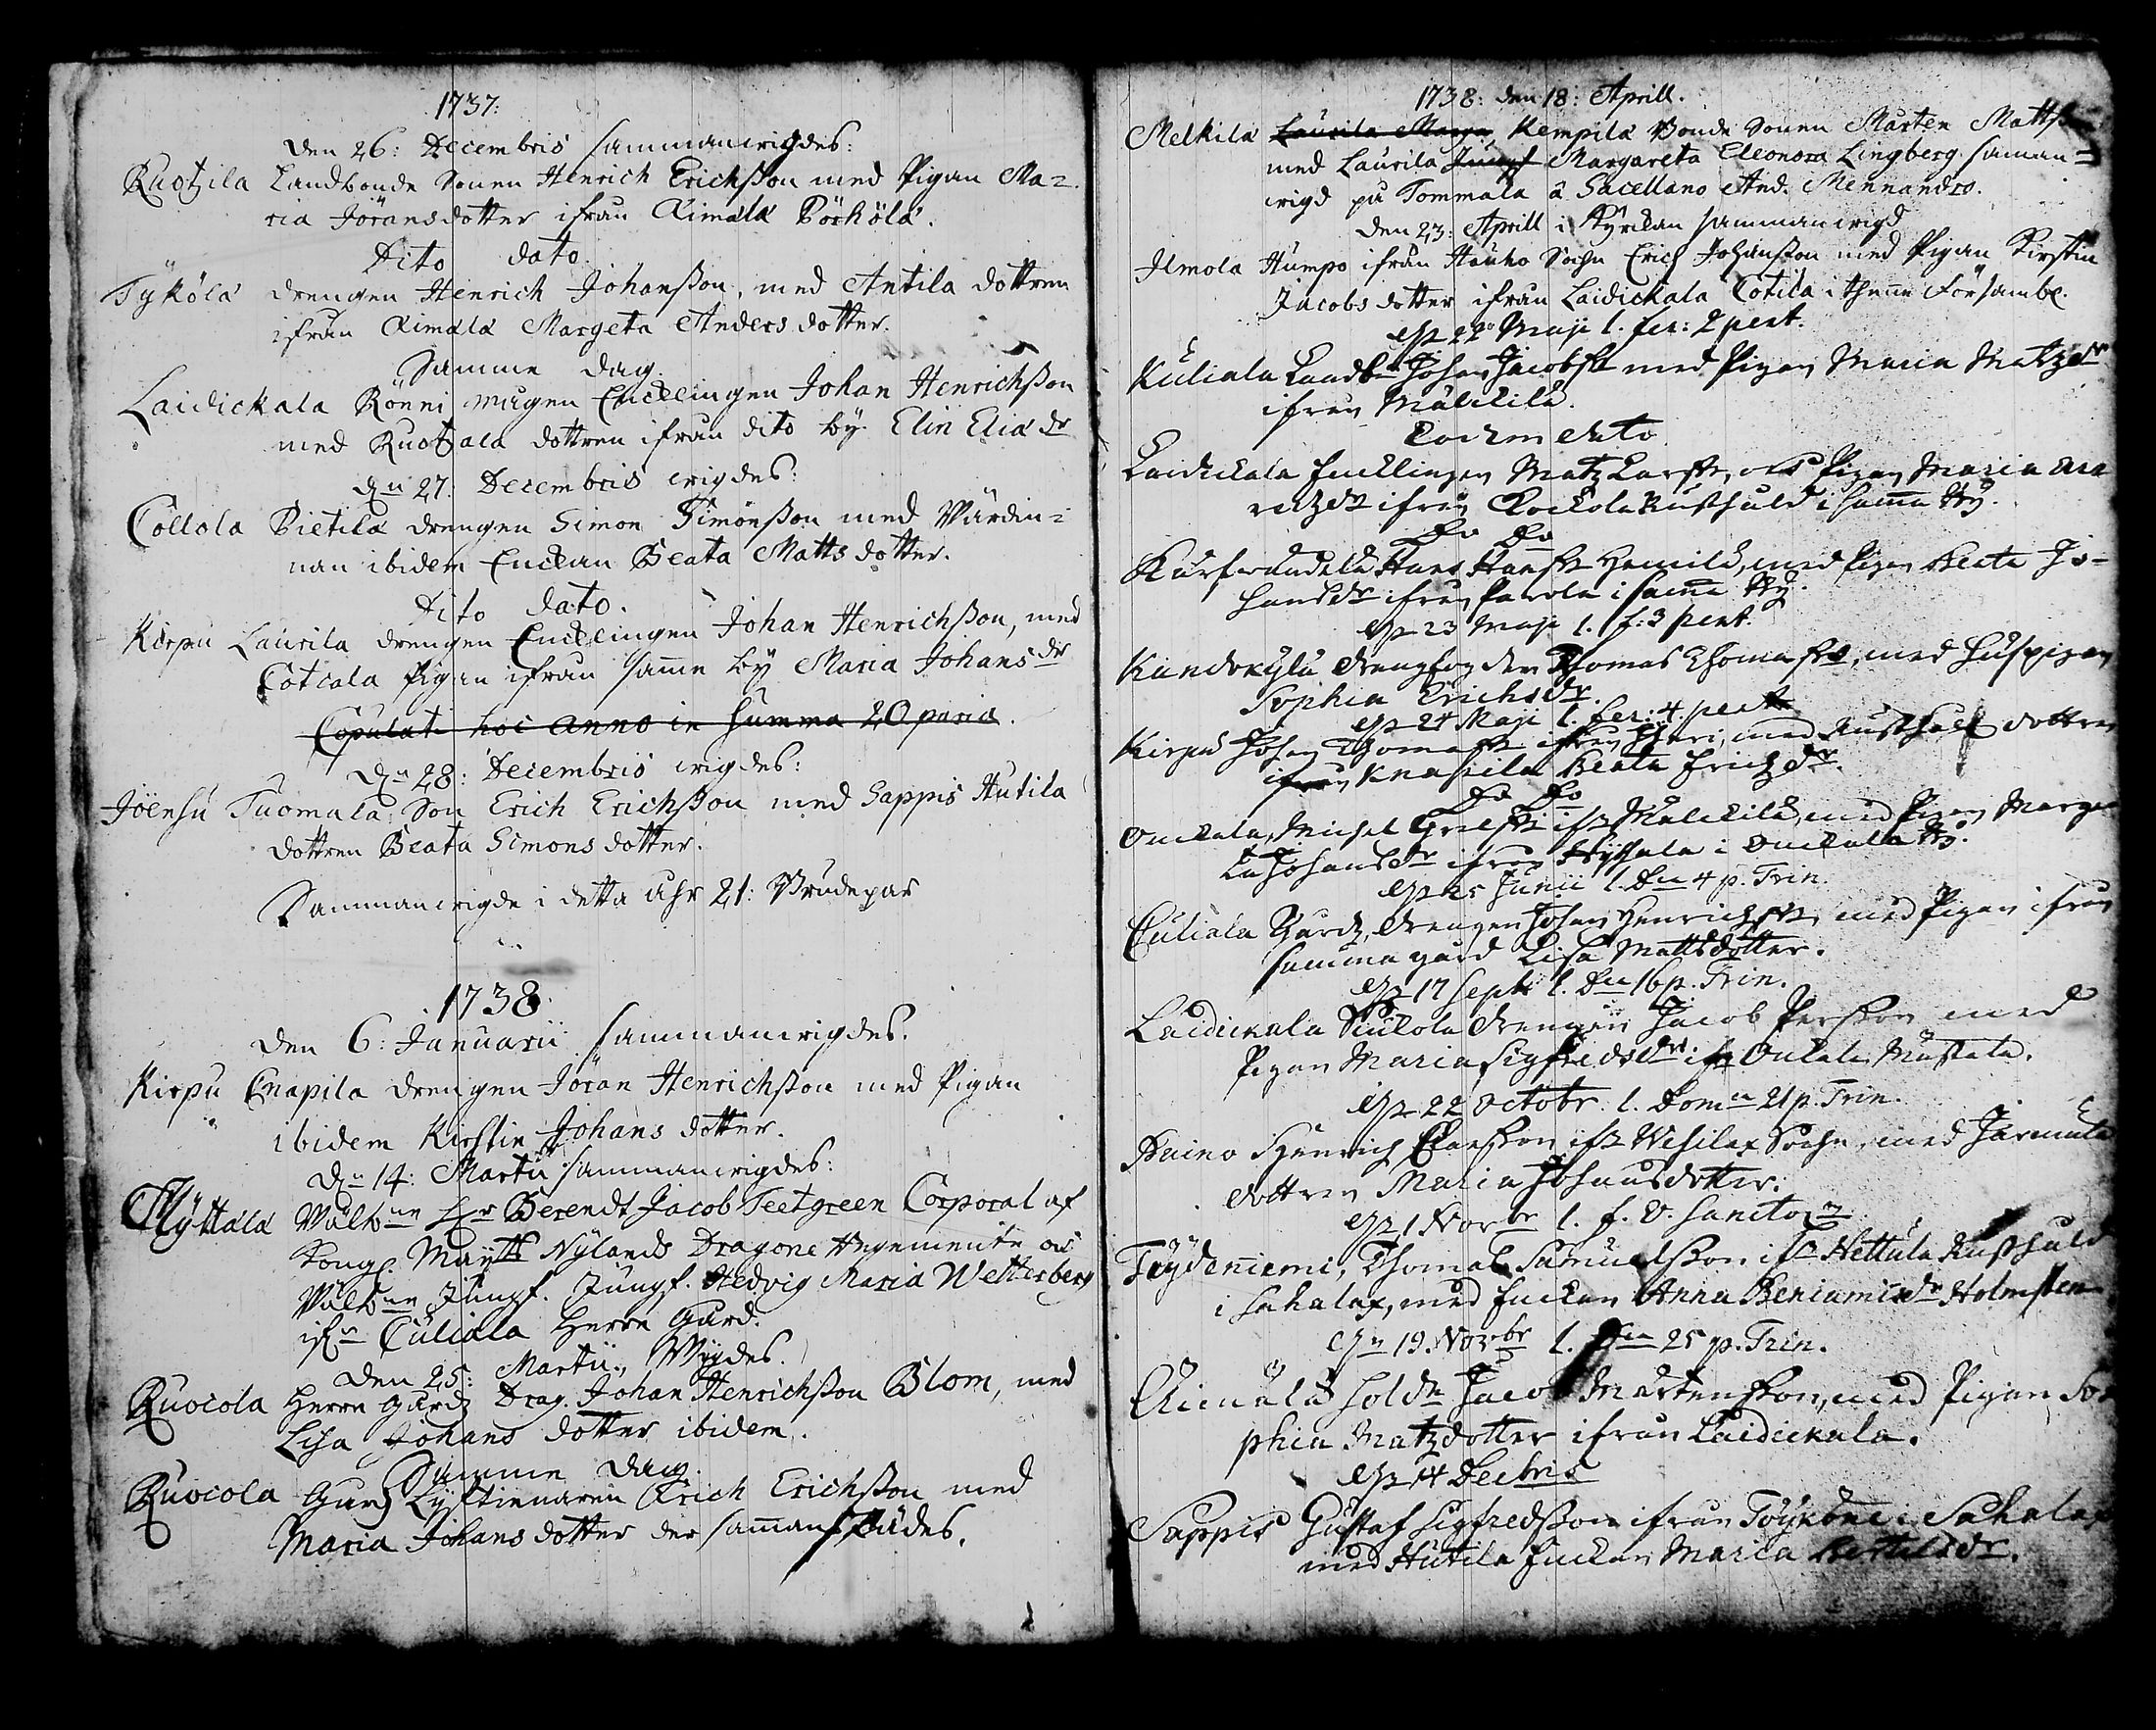 1737:
Den 26: Decembris sammanvigdes:
Ruotzila Landbonde Sonen Henrich Erichsson med Pigan Ma=
ria Jöransdotter ifrån Äimälä Pörhölä.
Dito dato.
Tykölä drengen Henrich Johansson, med Antila dottren
ifrån Äimälä Margeta Andersdotter.
Samme dag.
Laidickala Rönni mågen Encklingen Johan Henrichsson
med Ruotzala dottren ifrån dito by Elin Elia dr
dn 27: Decembris vigdes:
Collola Pietilä drengen Simon Simonsson med Värdin=
nan ibidem Enckan Beata Matts dotter.
Dito dato.
Kirpu Laurila drengen Encklingen Johan Henrichsson, med
Cotiala Pigan ifrån samme by Maria Johans dr
Copulati hoc anno in summa 20 paria.
dn 28: Decembris vigdes:
Joensu Tuomala Son Erich Erichsson med Sappis Hutila
dottren Beata Simons dotter.
Sammanvigde i detta åhr 21: Brudepar
1738
Den 6: Januarii sammanvigdes.
Kirpu Cnapila drengen Jöran Henrichsson med Pigan
ibidem Kirstin Johans dotter.
dn 14: Martii sammanvigdes:
Myttälä Välbne Hr Berendt Jacob Teetgreen Corporal af
Kongl. Maytts Nylands Dragone Regemente och
Välbne Jungf. Jungf. Hedvig Maria Wetterberg
ifrn Culiala Herre Gård.
Den 25: Martii, Wigdes.
Ruocola Herre Gårdz Drag. Johan Henrichsson Blom, med
Lisa Johans dotter ibidem.
Samme dag.
Ruocola Gårdz Lysttienaren Erich Erichsson med
Maria Johans dotter der samanstädes.
1738: den 18: Aprill.
Melkila Laurila Marga Kempilä Bonde Sonen Mårten Mattsson
med Laurila Jungf Margareta Eleonora Lingberg samman=
vigd på Tommala à Sacellano And. Mennandro.
Den 23: Aprill i Kyrckan sammanvigd
Ilmola Humpo ifrån Hauho Sochn Erich Johansson med Pigan Kirstin
Jacobs dotter ifrån Laidickala Cotila i thenne Försambl.
dn 22 Maji l. fer: 2 pent.
Kuliala Landbn Johan Jacobss med Pigan Maria Matzdr
ifrån Mälckilä.
Eodem dato
Laidickala Encklingen Matz Larss, och Pigan Maria
ifrån Cockola Rusthåld i samma By.
Do Do
Hans Hanss Hemilä, med Pigan Beata Jo-
hansdr ifrån Parola i samma By.
dn 23 Maji l. f: 3 pent.
Kandokylä Thomas Thomass, med Huspigan
Sophia Erichsdr.
dn 24 Maji l. fer: 4 pent
Kirpu Johan Thomass ifrån med Rusthålls dottren
ifrån Knapila Beata Erichzdr.
Do Do
Onckala, Michel Grelss ifr Mälckilä, med Pigan Marge
ta Johansdr ifrån Hyssala i Onckala By.
dn 25 Junii l. Dn 4 p. Trin.
Culiala Gårdz drengen Johan Henrichss med Pigan ifrån
samma gård Lisa Mattsdotter.
dn 17 Sept l. Dn 16 p. Trin.
Laidickala Seickola drengen Jacob Persson med
Pigan Maria Sigfredsdr. ifr Onkala Mustala.
dn 22 Octobr. l. Domn 21 p. Trin.
Paino Henrich Clarsson ifr Vesilax Sochn med Järmälä
dottren Maria Johansdotter.
dn 1 Novbr l. f. O. Sanctor
Töydeniemi, Thomas Samuelsson ifr Hettula Rusthåld
i Sahalax, med Enckan Anna Beniaminsdr Holmsten
dn 19. Novbr l. Dn 25 p. Trin.
Äimälä Soldn Jacob Mårtensson, med Pigan So
phia Matzdotter ifrån Laidickala.
dn 4 Decbris
Sappis Gustaf Sigfredsson ifrån Töykänä i Sahalax
med Hutila Enckan Maria Bertilsdr.